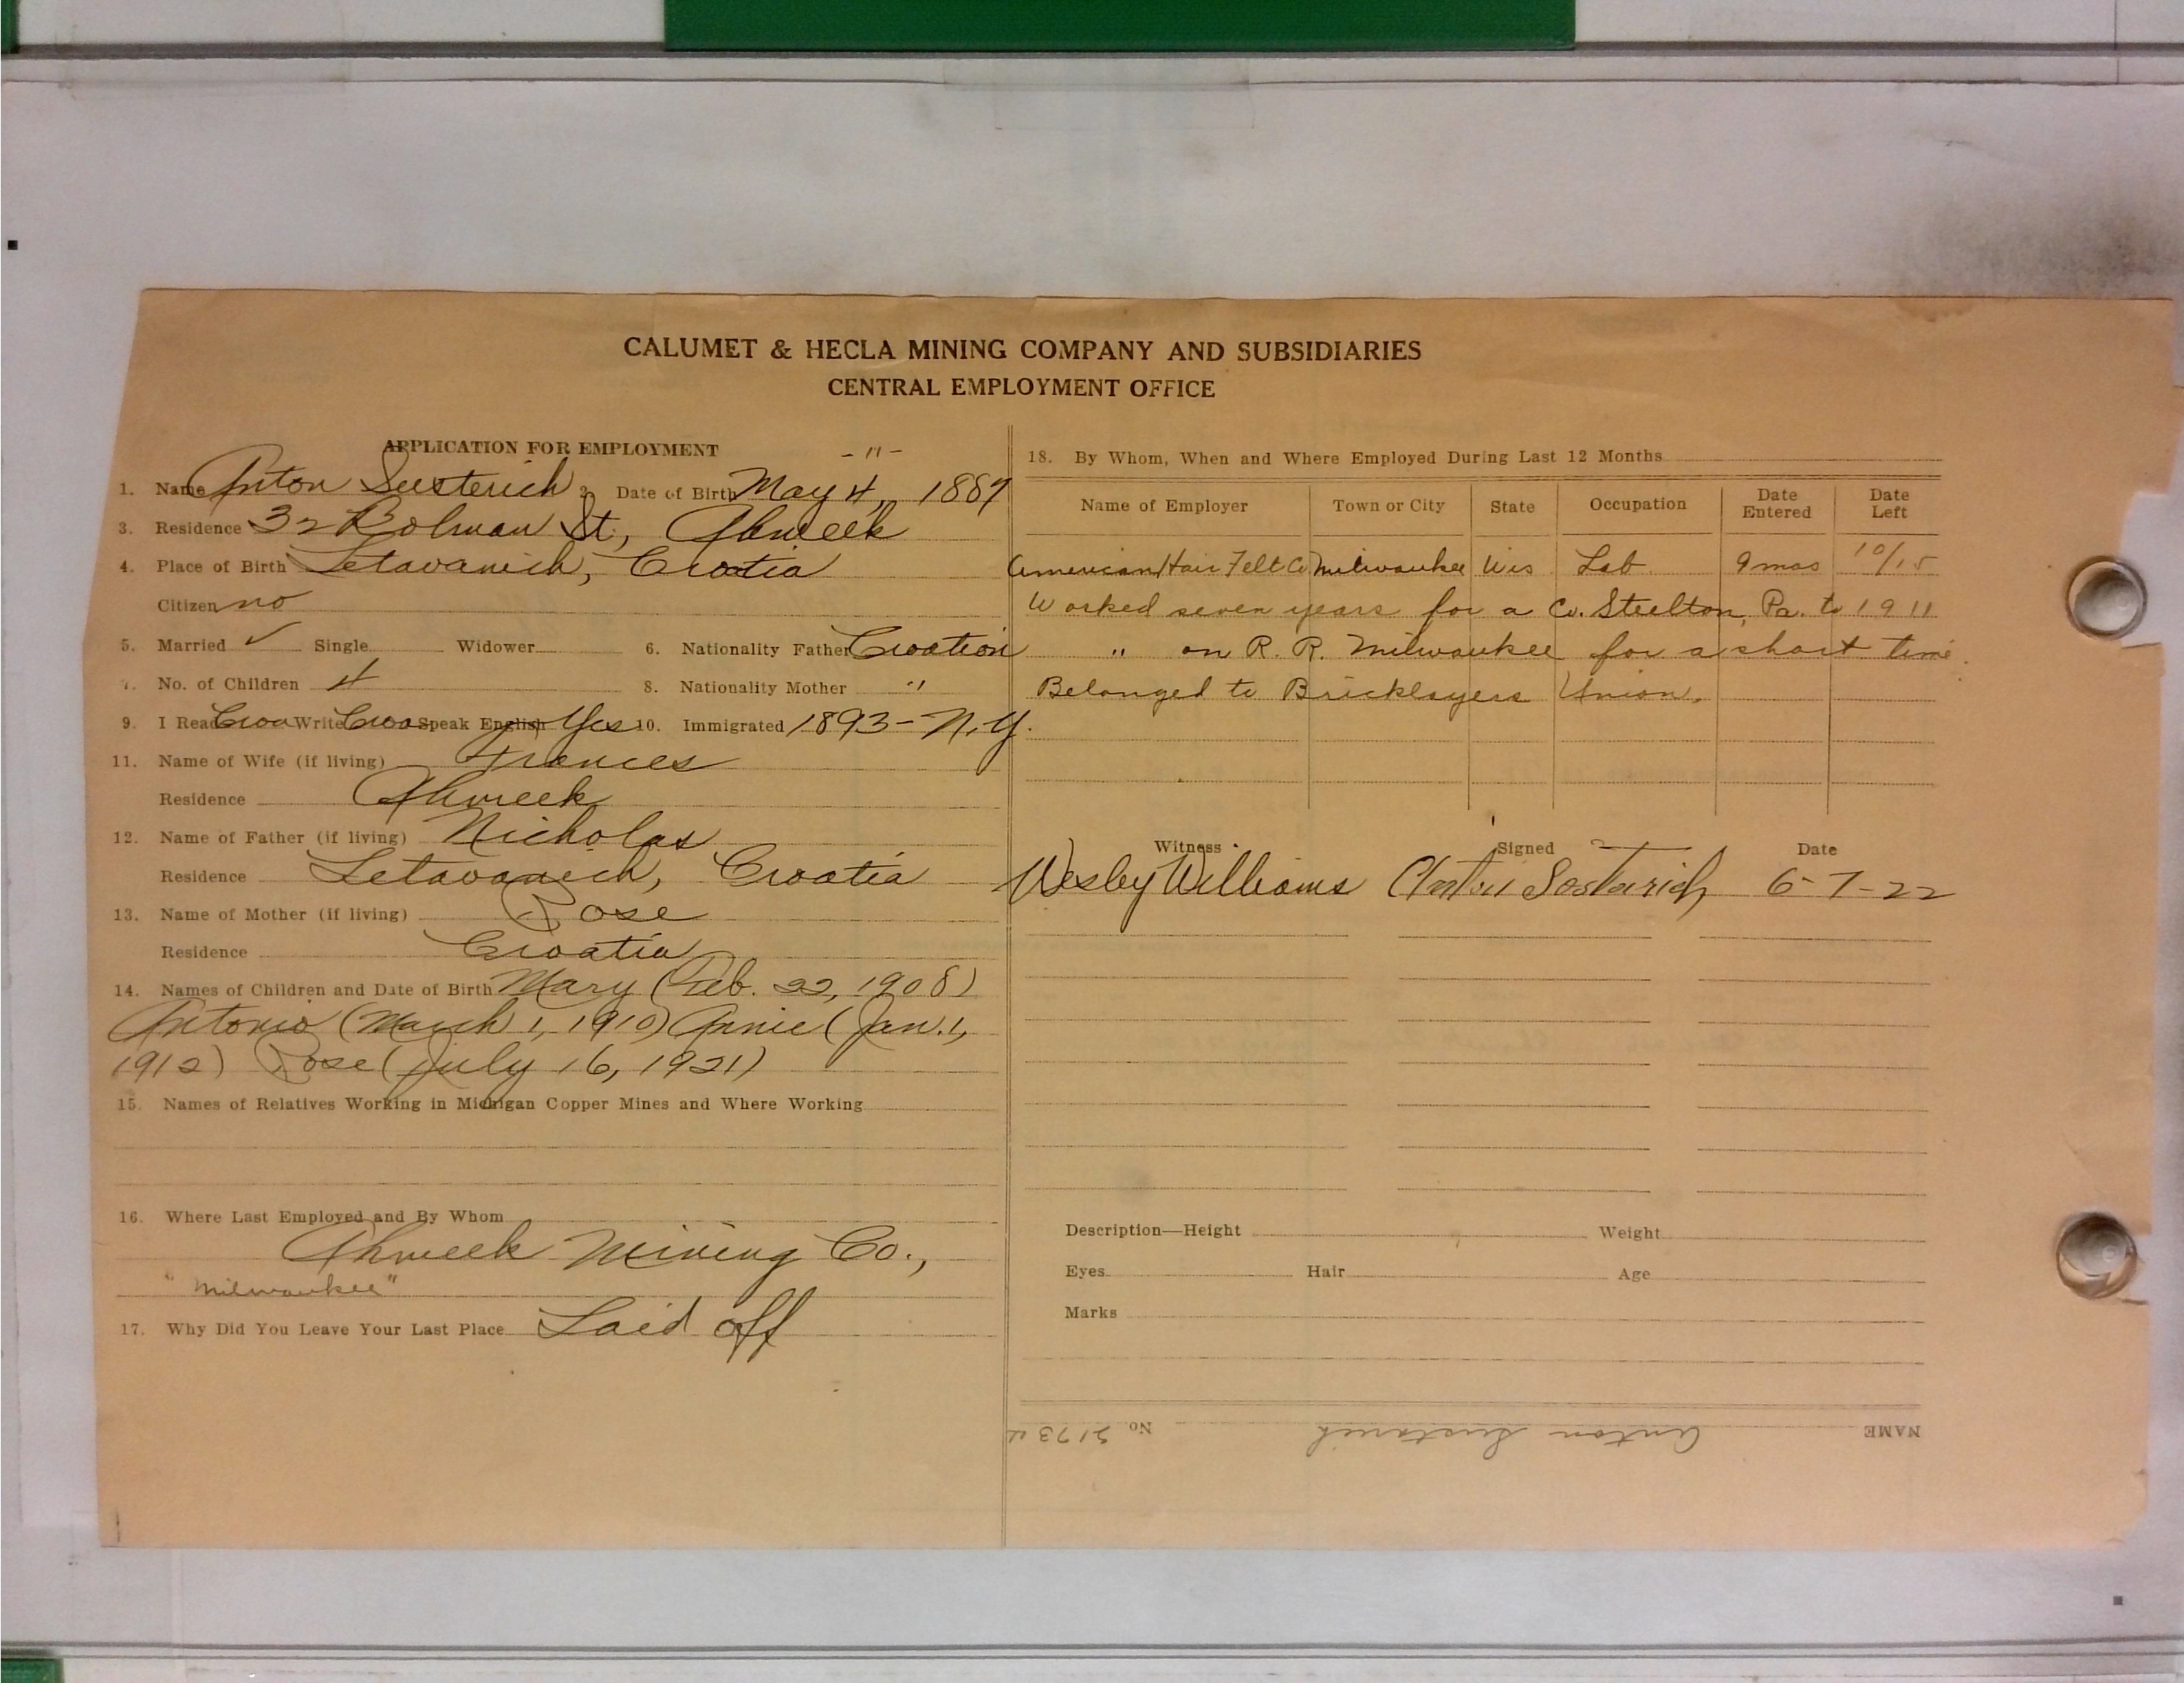 CALUMET & HECLA MINING COMPANY AND SUBSIDIARIES
CENTRAL EMPLOYMENT OFFICE
APPLICATION FOR EMPLOYMENT - 11 -
1. Name Anton Susterich 2. Date of Birth May 4, 1887
3. Residence 32 Bolman St, Ahmeek
4. Place of Birth Letavanich, Croatia
Citizen no
5. Married ✓ Single Widower 6. Nationality Father Croation
7. No. of Children 4 8. Nationality Mother "
9. I Read Croa Write Croa Speak English Yes 10. Immigrated 1893 - N.Y.
11. Name of Wife (if living) Frances
Residence Ahmeek
12. Name of Father (if living) Nicholas
Residence Letavanich, Croatia
13. Name of Mother (if living) Rose
Residence Croatia
14. Names of Children and Date of Birth Mary (Feb. 22, 1908)
Antonio (March 1, 1910) Annie (Jan. 1,
1912) Rose (July 16, 1921)
15. Names of Relatives Working in Michigan Copper Mines and Where Working
16. Where Last Employed and By Whom
Ahmeek Mining Co.,
"Milwaukee"
17. Why Did You Leave Your Last Place Laid off
18. By Whom, When and Where Employed During Last 12 Months
Name of Employer Town or City State Occupation Date Entered Date Left
American Hair Felt Co Milwaukee Wis Lab. 9 mos 10/15
Worked seven years for a Co. Steelton, Pa. to 1911
" on R. R. Milwaukee for a short time.
Belonged to Bricklayers Union.
Witness Signed Date
Wesley Williams Anton Sostarich 6-7-22
Description—Height Weight
Eyes Hair Age
Marks
NAME Anton Sustarich No